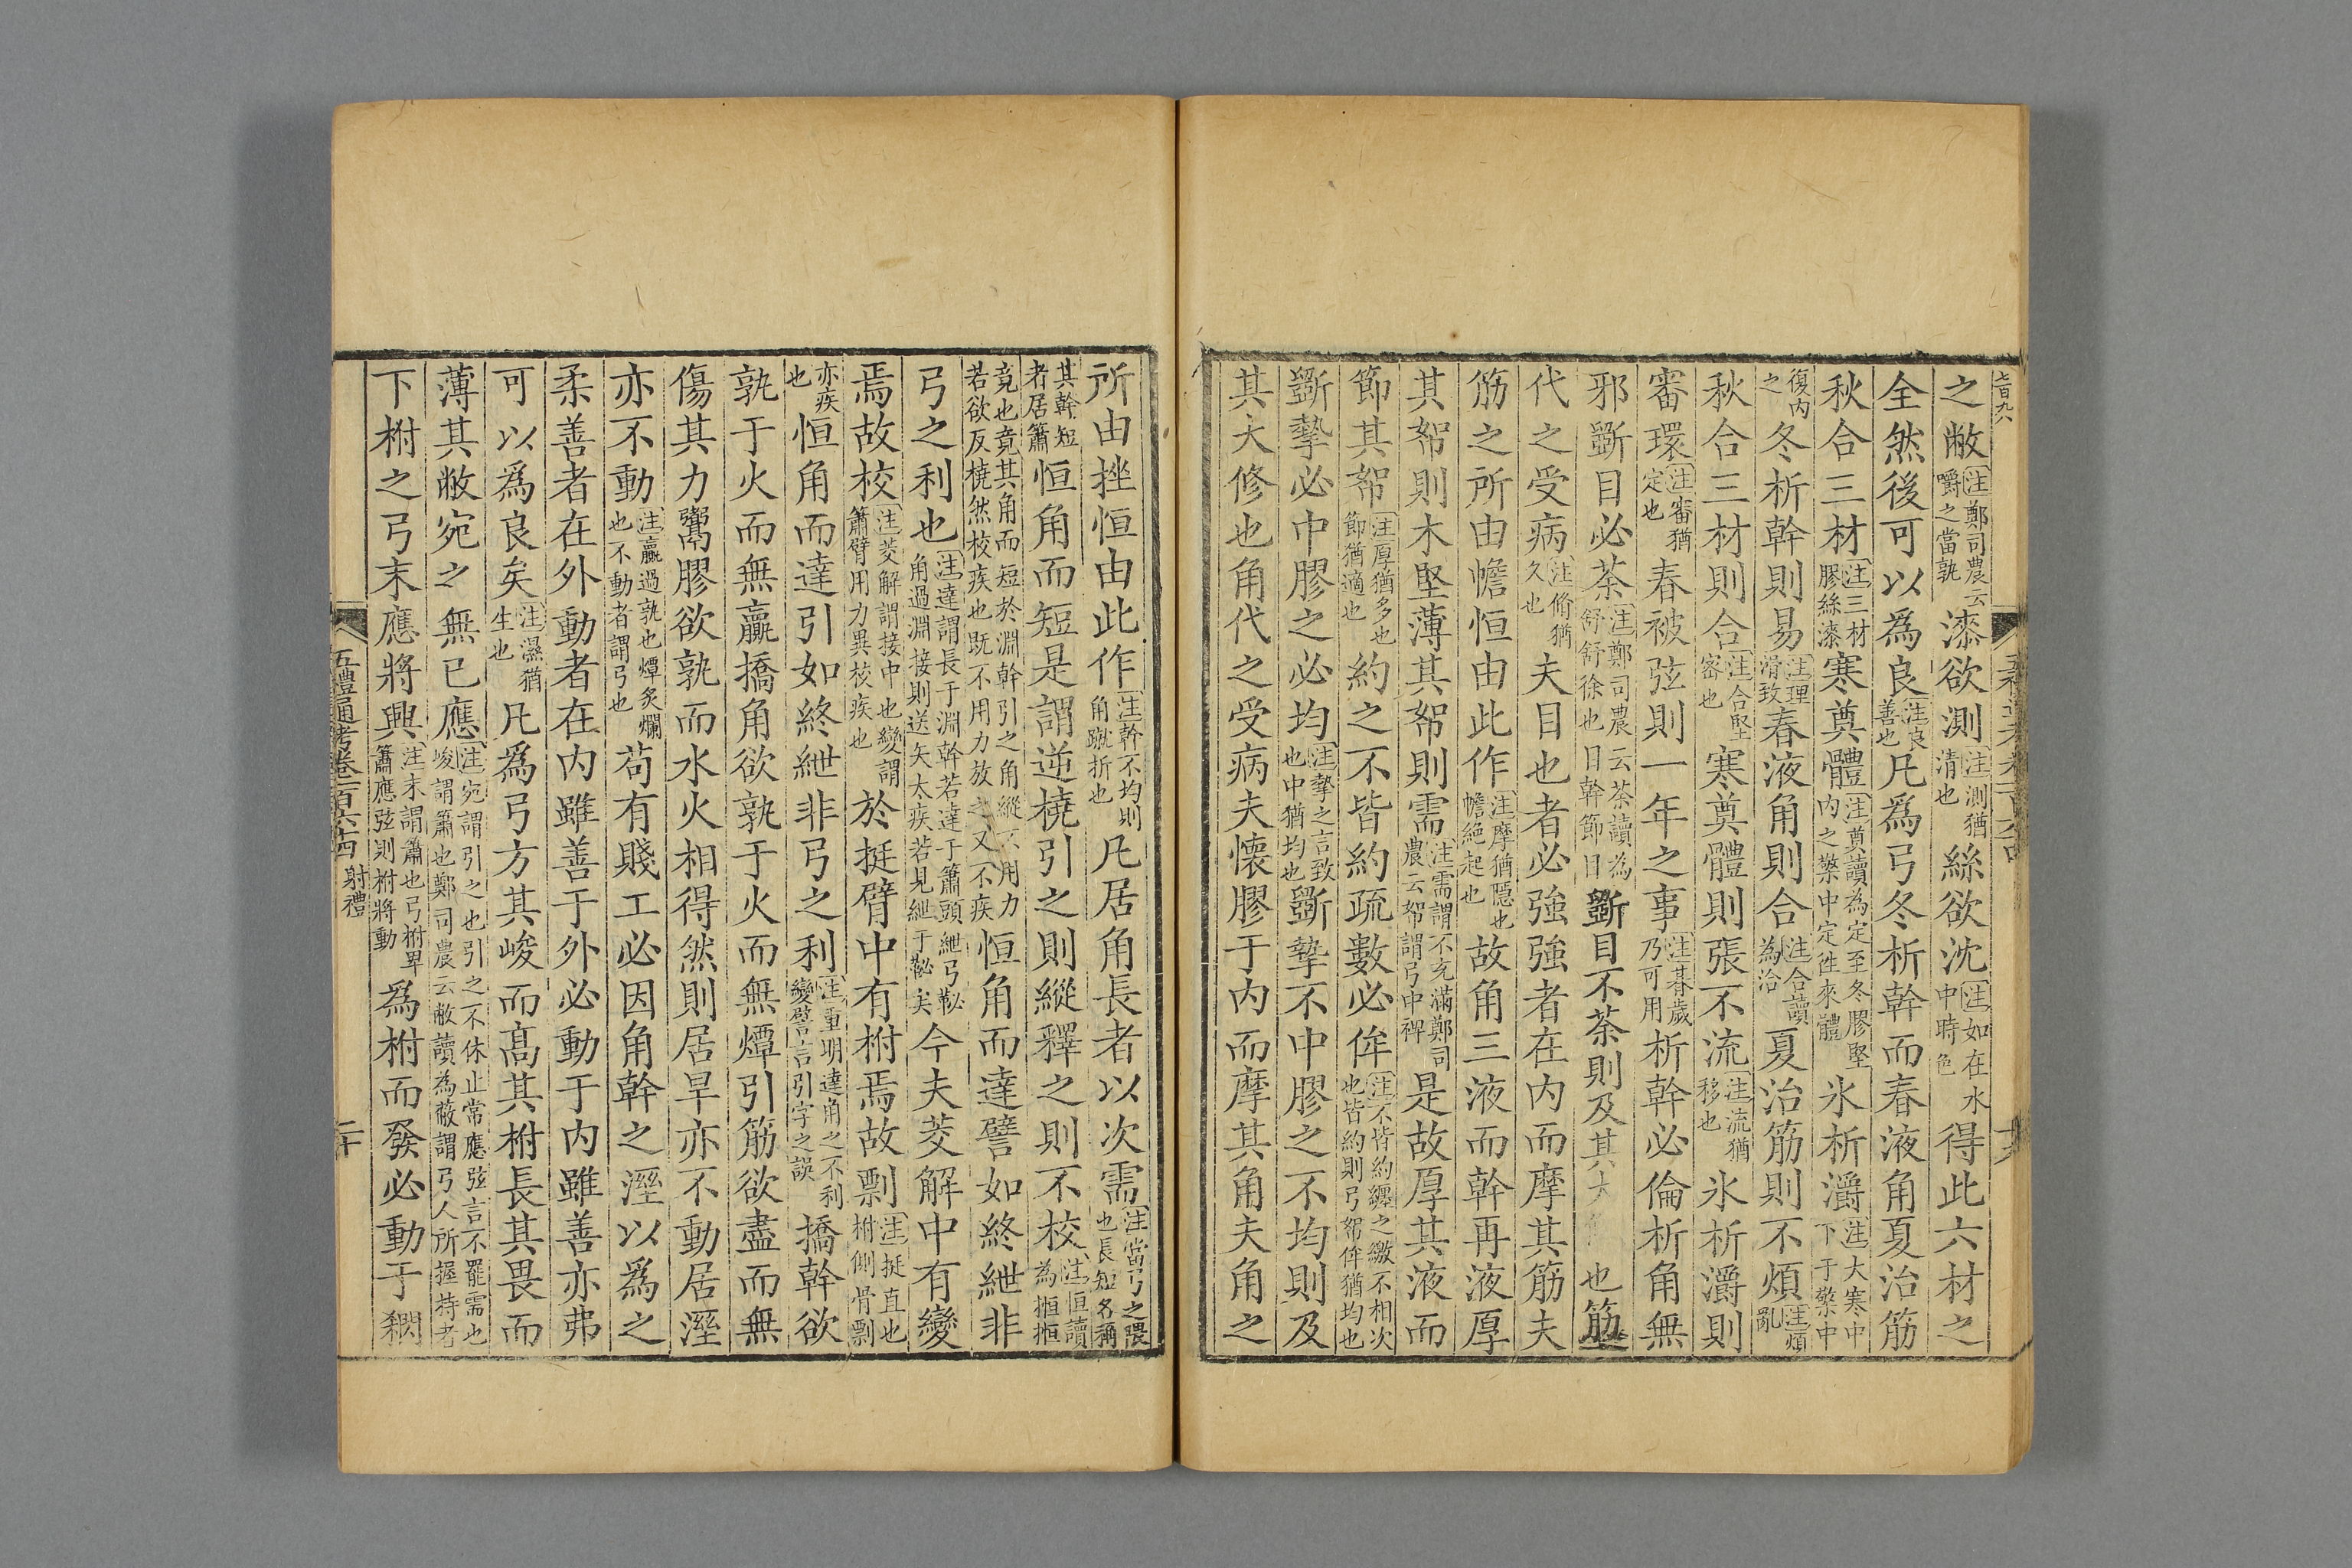 七百九六
之敝注鄭司農云嚼之當孰漆欲測注測猶清也絲欲沈注如在水中時色得此六材之
全然後可以爲良注良善也凡爲弓冬析幹而春液角夏治筋
秋合三材注三材膠絲漆寒奠體注奠讀為定至冬膠堅內之檠中定徃來體氷析灂注大寒中下于檠中
復内之冬析幹則易注理滑致春液角則合注合讀為洽夏治筋則不煩注煩亂
秋合三材則合注合堅密也寒奠體則張不流注流猶移也氷析灂則
審環注審猶定也春被弦則一年之事注朞歲乃可用析幹必倫析角無
邪斵目必荼注鄭司農云荼讀為舒舒徐也目幹節目斵目不荼則及其大也筋
代之受病注脩猶久也夫目也者必強強者在内而摩其筋夫
筋之所由幨恒由此作注摩猶隱也幨絶起也故角三液而幹再液厚
其帤則木堅薄其帤則需注需謂不充滿鄭司農云帤謂弓中裨是故厚其液而
節其帤注厚猶多也節猶適也約之不皆約疏數必侔注不皆約纏之繳不相次也皆約則弓帤侔猶均也
斵摯必中膠之必均注摯之言致也中猶均也斵摯不中膠之不均則及
其大修也角代之受病夫懷膠于内而摩其角夫角之
所由挫恒由此作注幹不均則角蹴折也凡居角長者以次需注當弓之隈也長短各稱
其幹短者居簫恒角而短是謂逆橈引之則縱釋之則不校注恒讀為搄搄
竟也竟其角而短於淵幹引之角縱不用力若欲反橈然校疾也既不用力放之又不疾恒角而達譬如終紲非
弓之利也注達謂長于淵幹若達于簫頭紲弓䪐角過淵接則送矢太疾若見紲于䪐矣今夫茭解中有變
焉故校注茭解謂接中也變謂簫臂用力異校疾也於挺臂中有柎焉故剽注挺直也柎側骨剽
亦疾也恒角而達引如終紲非弓之利注重明達角之不利變譬言引字之誤撟幹欲
孰于火而無贏撟角欲孰于火而無燂引筋欲盡而無
傷其力鬻膠欲孰而水火相得然則居旱亦不動居溼
亦不動注贏過孰也燂炙爛也不動者謂弓也苟有賤工必因角幹之溼以爲之
柔善者在外動者在内雖善于外必動于内雖善亦弗
可以爲良矣注濕猶生也凡爲弓方其峻而高其柎長其畏而
薄其敝宛之無已應注宛謂引之也引之不休止常應弦言不罷需也峻謂簫也鄭司農云敝讀為蔽謂弓人所握持者
下柎之弓末應將興注末謂簫也弓柎卑簫應弦則柎將動爲柎而發必動于䋞
五禮通考卷一百六十四 射禮 二十